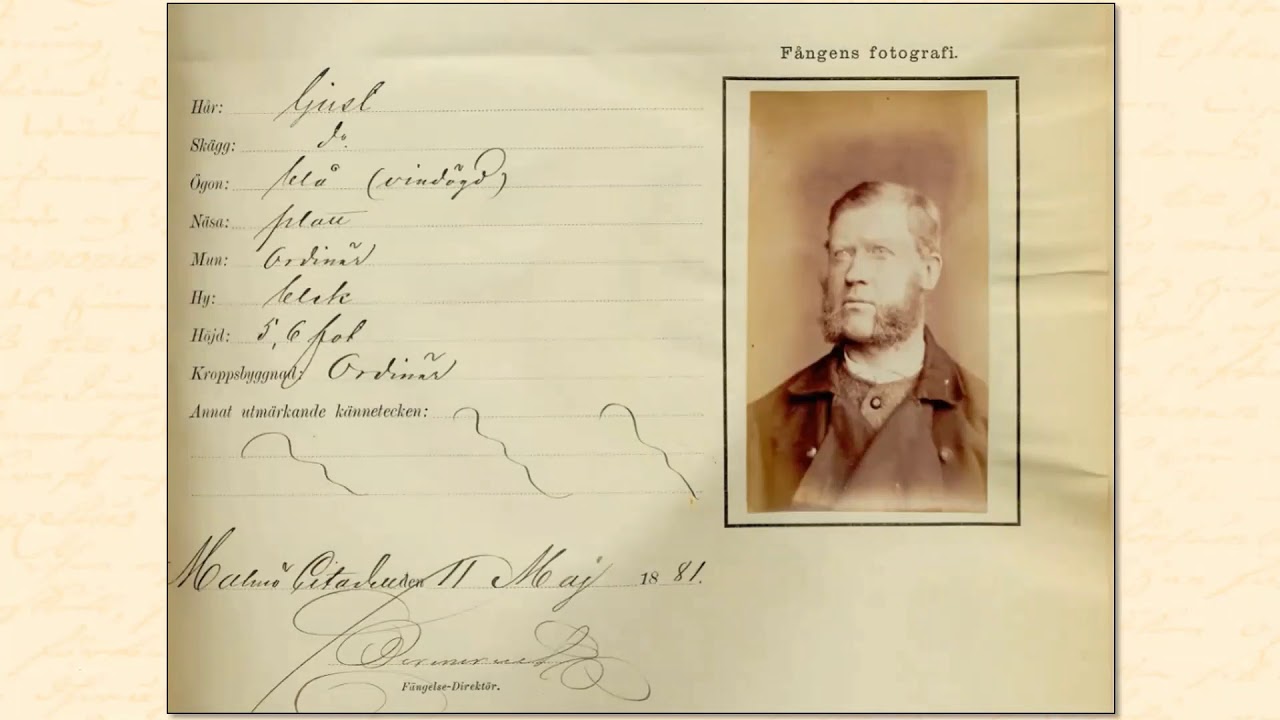 Fångens fotografi.
Hår: ljust
Skägg: do
Ögon: blå (vindögd)
Näsa: platt
Mun: Ordinär
Hy: blek
Höjd: 5,6 fot
Kroppsbyggnad: Ordinär
Annat utmärkande kännetecken:
Malmö Citadell den 11 Maj 1881.
Fängelse-Direktör.